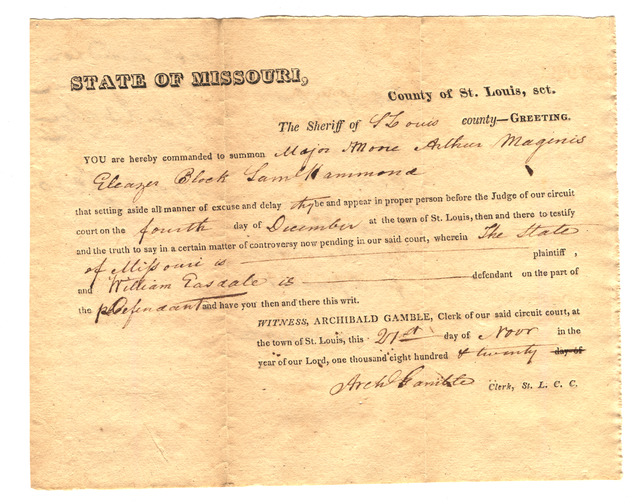 STATE OF MISSOURI,
County of St. Louis, sct.
The Sheriff of St Louis county—GREETING.
YOU are hereby commanded to summon Major Moore Arthur Magenis
Eleazer Block Saml Hammond
that setting aside all manner of excuse and delay they be and appear in proper person before the Judge of our circuit
court on the fourth day of December at the town of St. Louis, then and there to testify
and the truth to say in a certain matter of controversy now pending in our said court, wherein The State
of Missouri is plaintiff,
and William Easdale is defendant on the part of
the Defendant and have you then and there this writ.
WITNESS, ARCHIBALD GAMBLE, Clerk of our said circuit court, at
the town of St. Louis, this 21st day of Novr in the
year of our Lord, one thousand eight hundred & twenty day of
Archd Gamble Clerk, St. L. C. C.